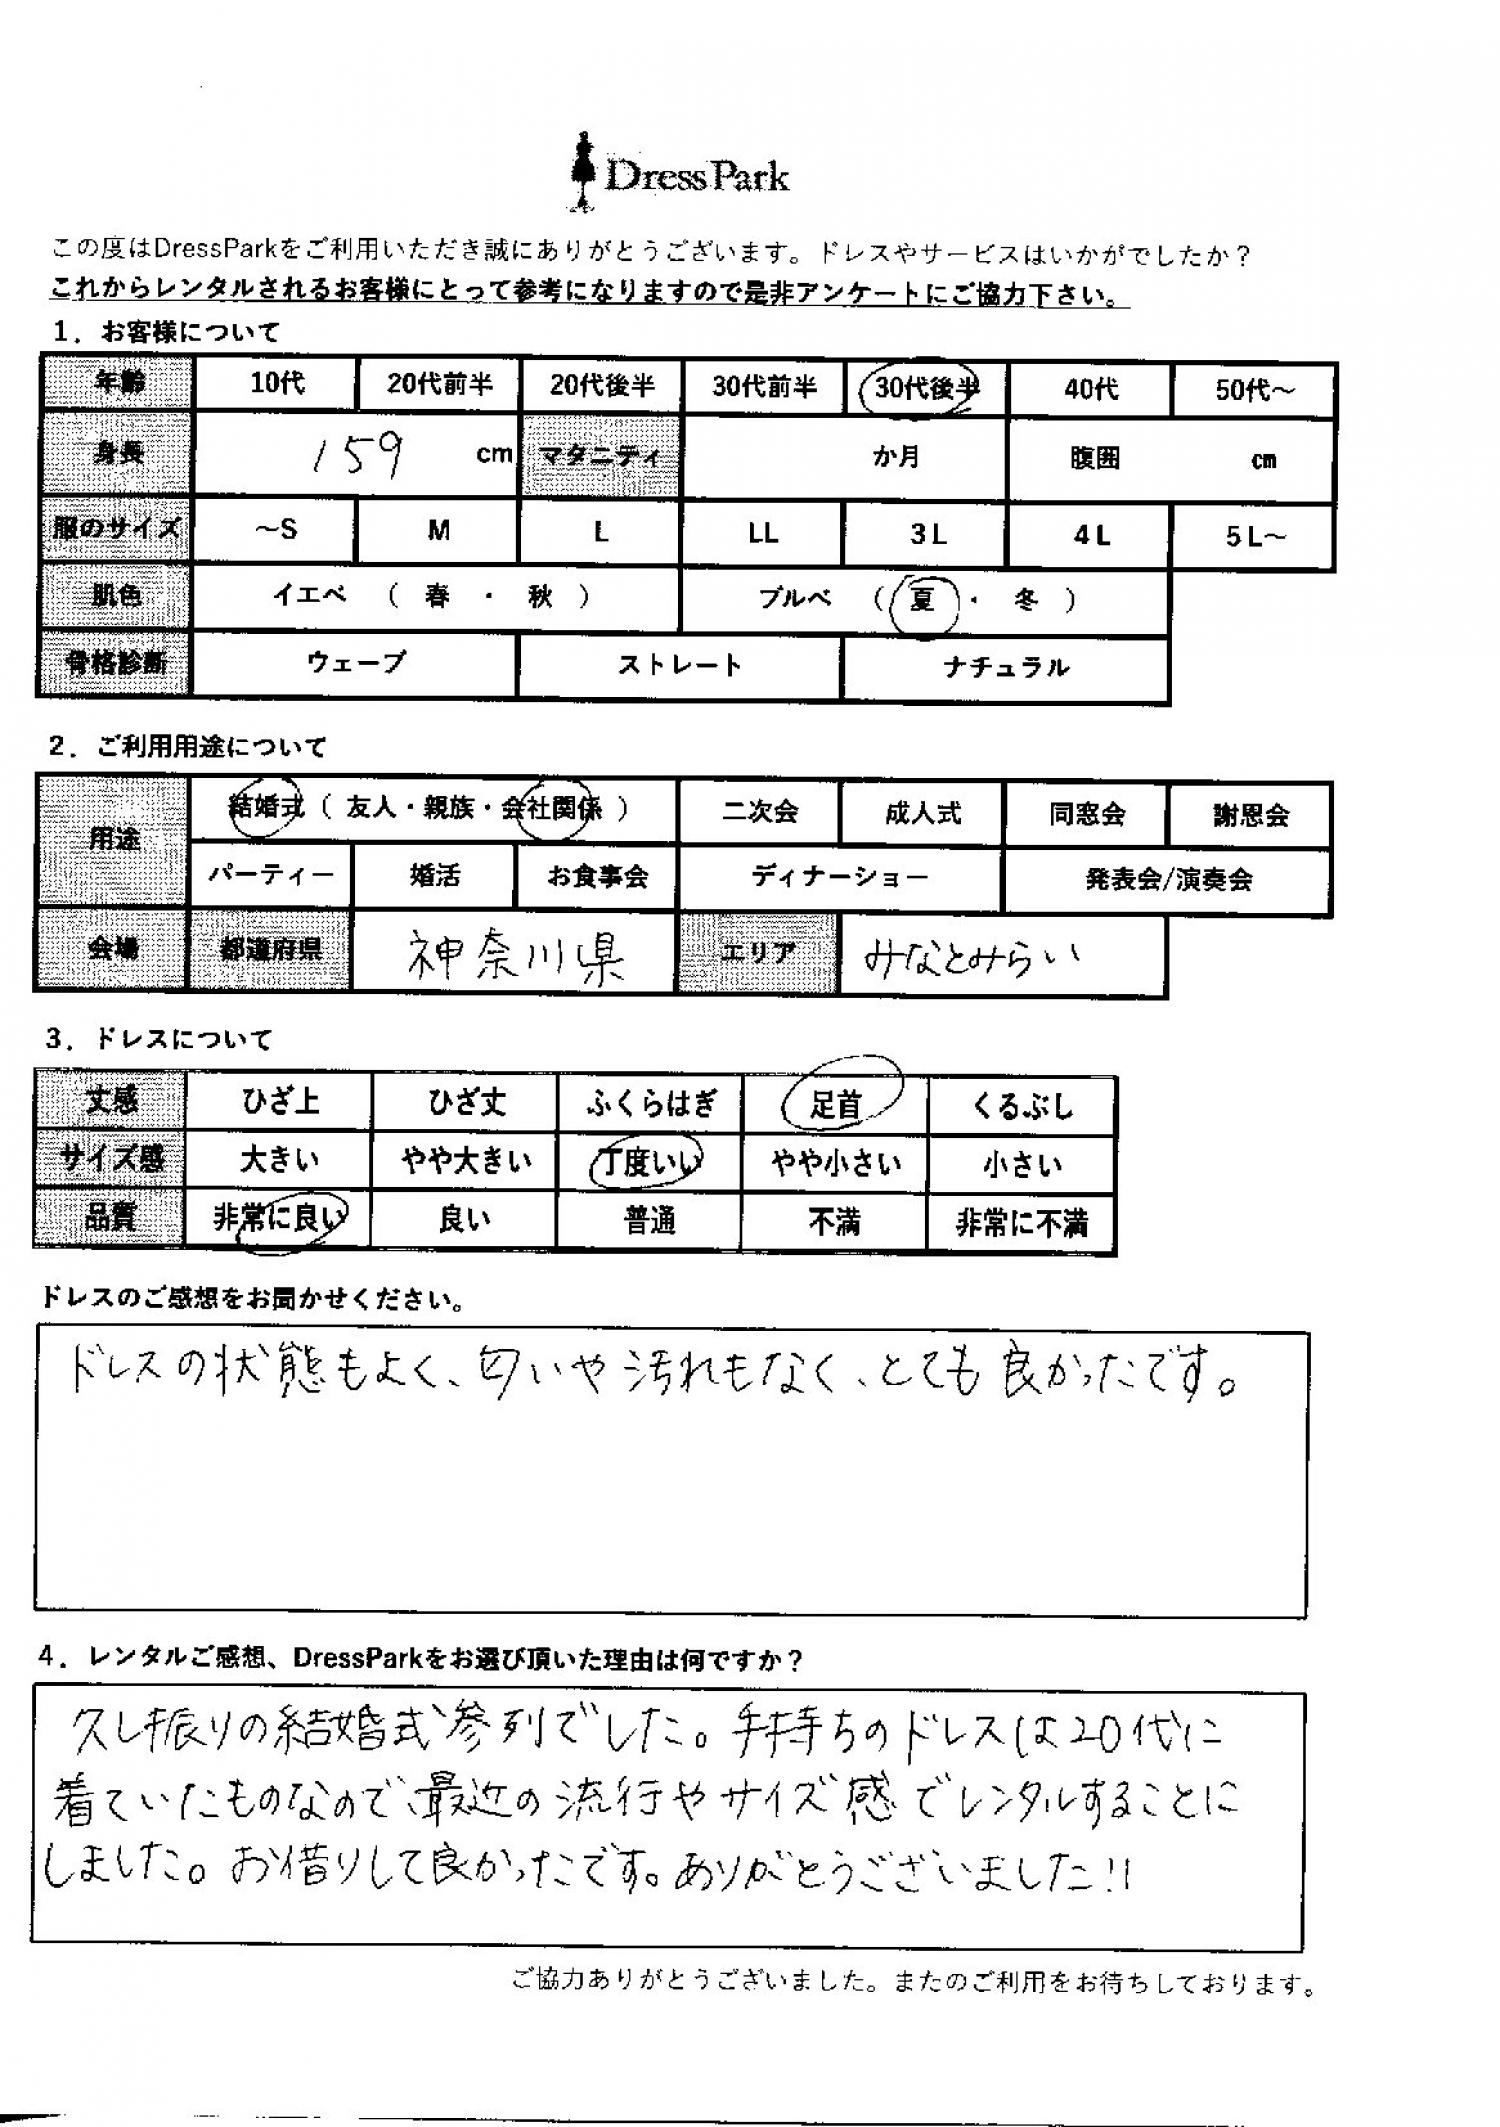 Dress Park
この度はDressParkをご利用いただき誠にありがとうございます。ドレスやサービスはいかがでしたか？
これからレンタルされるお客様にとって参考になりますので是非アンケートにご協力下さい。
1．お客様について
年齢 10代 20代前半 20代後半 30代前半 30代後半 40代 50代～
身長 159 cm マタニティ か月 腹囲 cm
服のサイズ ～S M L LL 3L 4L 5L～
肌色 イエベ （ 春 ・ 秋 ） ブルベ （ 夏 ・ 冬 ）
骨格診断 ウェーブ ストレート ナチュラル
2．ご利用用途について
用途 結婚式（ 友人・親族・会社関係 ） 二次会 成人式 同窓会 謝恩会
パーティー 婚活 お食事会 ディナーショー 発表会/演奏会
会場 都道府県 神奈川県 エリア みなとみらい
3．ドレスについて
丈感 ひざ上 ひざ丈 ふくらはぎ 足首 くるぶし
サイズ感 大きい やや大きい 丁度いい やや小さい 小さい
品質 非常に良い 良い 普通 不満 非常に不満
ドレスのご感想をお聞かせください。
ドレスの状態もよく、匂いや汚れもなく、とても良かったです。
4．レンタルご感想、DressParkをお選び頂いた理由は何ですか？
久し振りの結婚式参列でした。手持ちのドレスは20代に
着ていたものなので、最近の流行やサイズ感でレンタルすることに
しました。お借りして良かったです。ありがとうございました!!
ご協力ありがとうございました。またのご利用をお待ちしております。